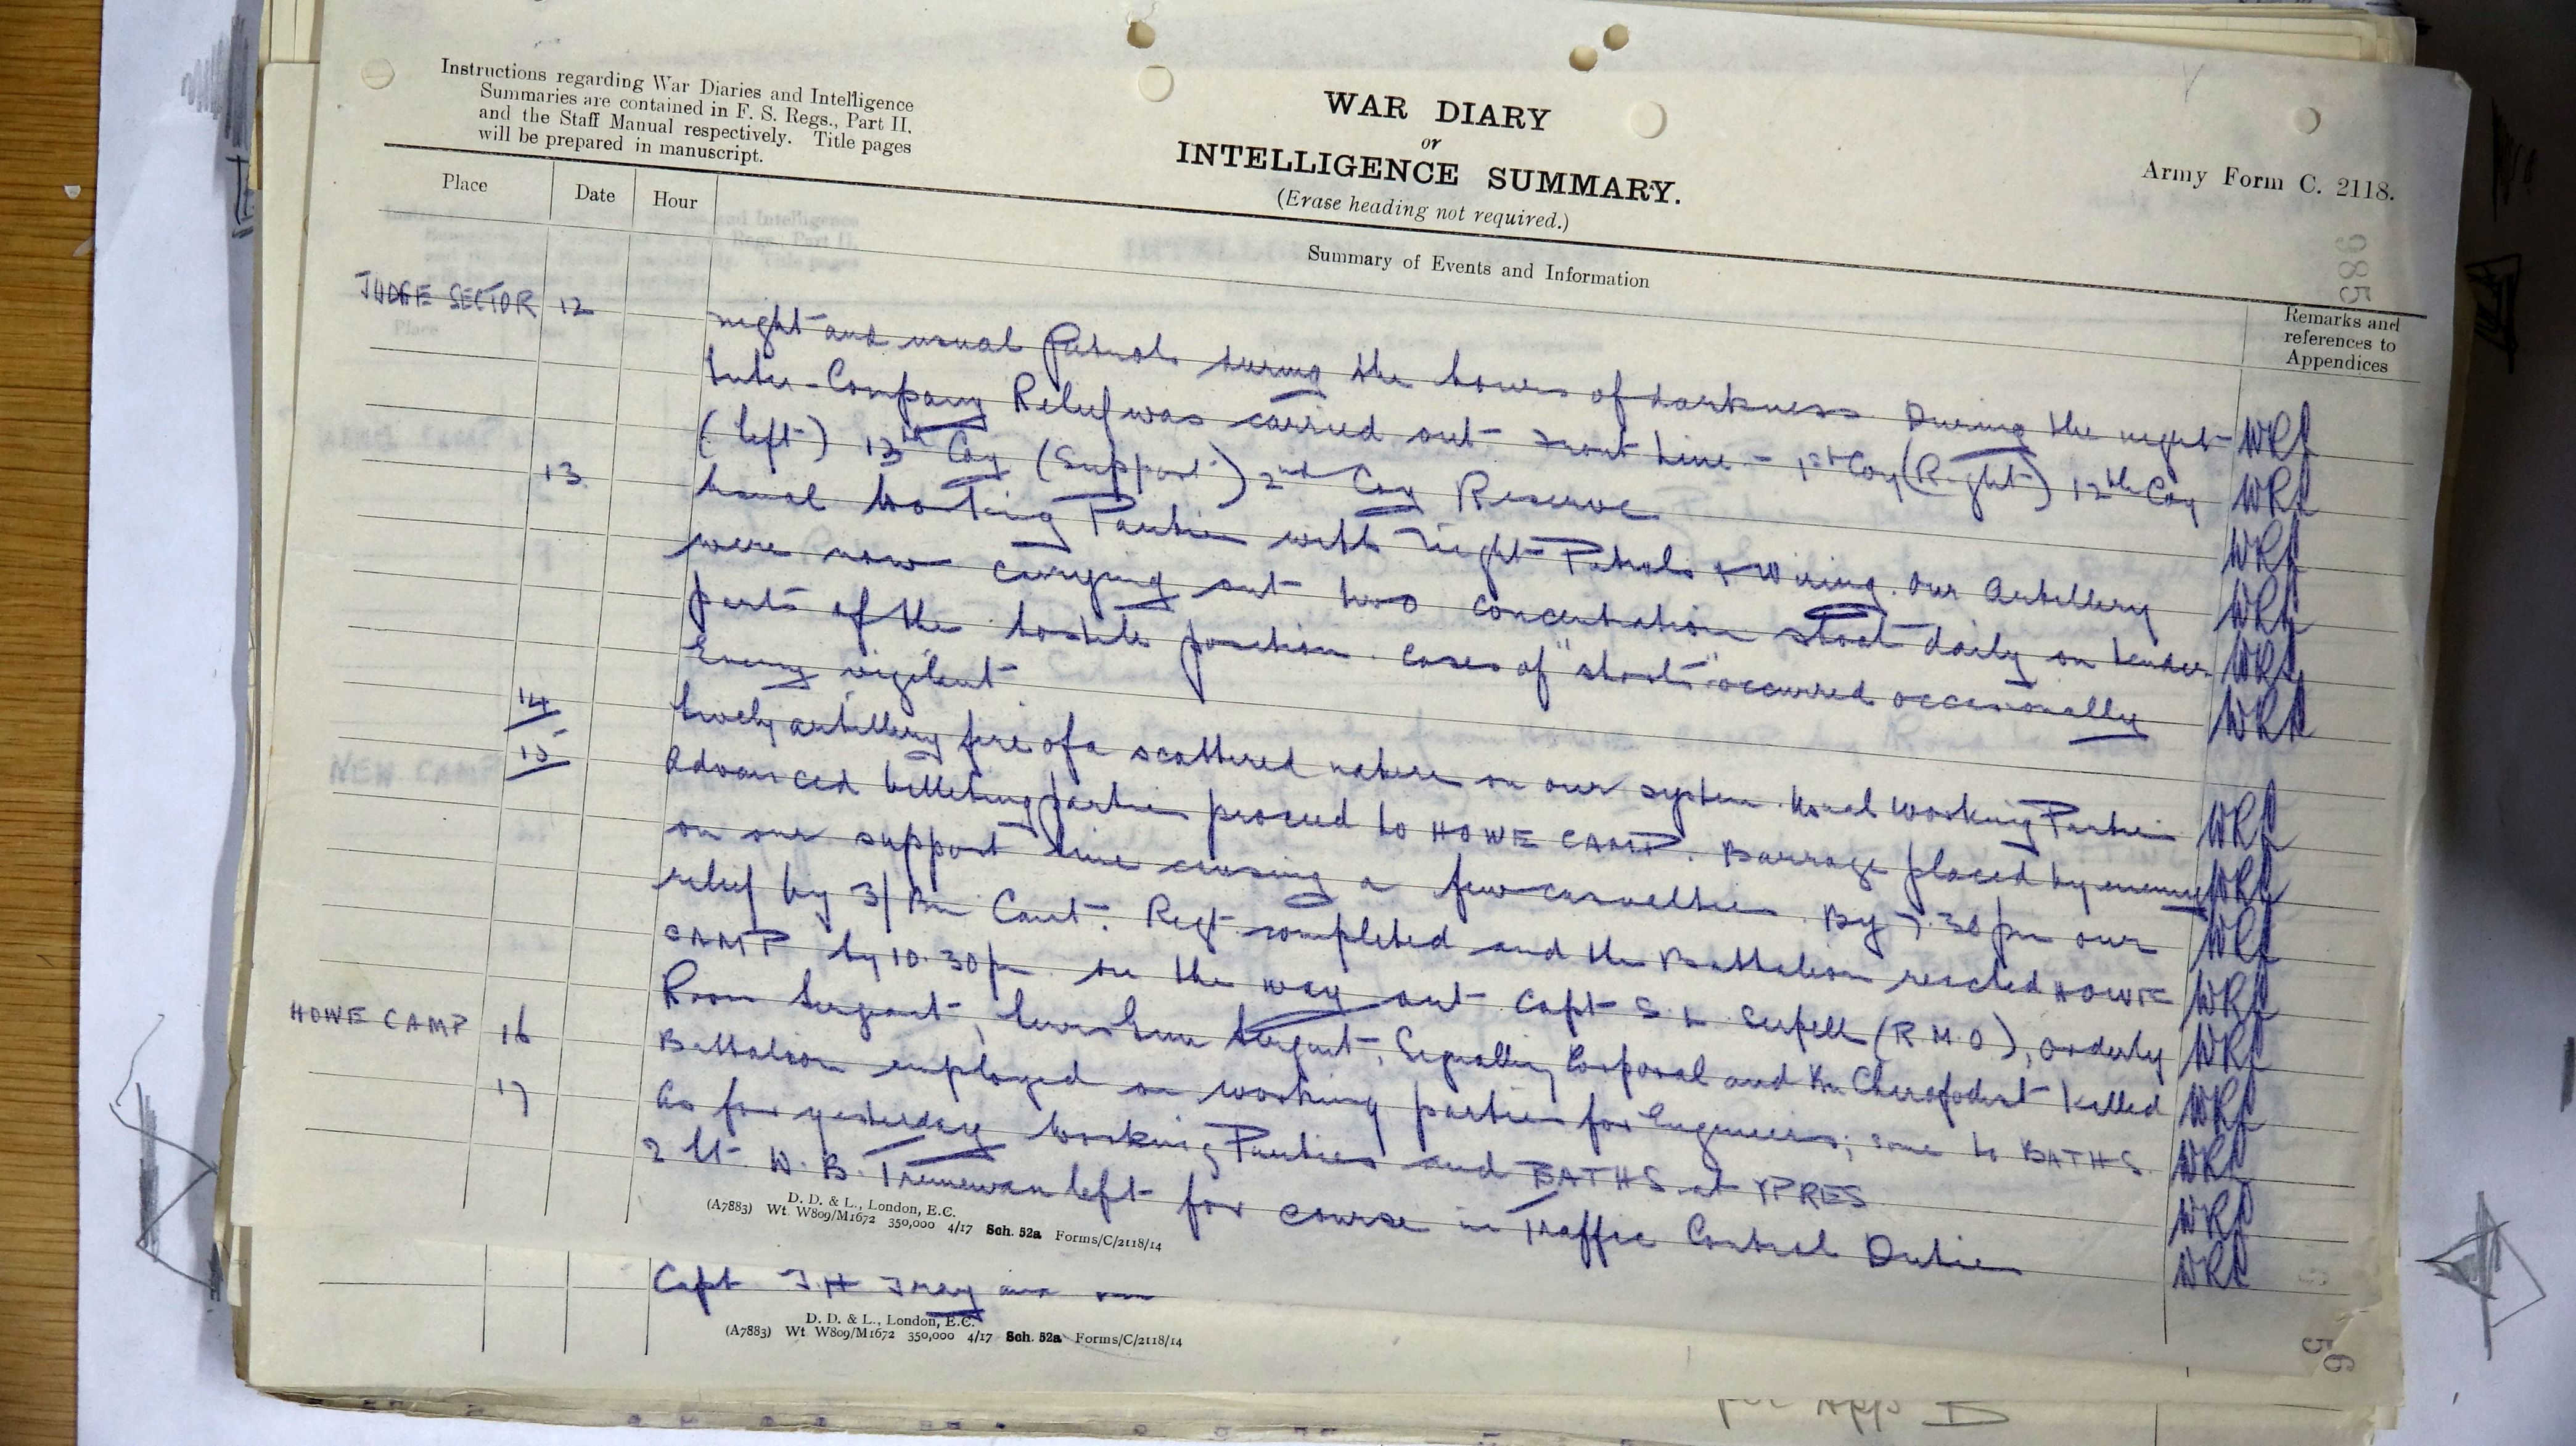 Instructions regarding War Diaries and Intelligence
Summaries are contained in F. S. Regs., Part II.
and the Staff Manual respectively. Title pages
will be prepared in manuscript.
WAR DIARY
or
INTELLIGENCE SUMMARY.
(Erase heading not required.)
Army Form C. 2118.
Place Date Hour Summary of Events and Information Remarks and references to Appendices
985
JUDGE SECTOR 12 night and usual Patrols during the hours of darkness During the night WRF
Inter-Company Relief was carried out Front Line - 1st Coy (Right) 12th Coy WRF
(left) 13th Coy (Support) 2nd Coy Reserve WRF
13 Usual Working Parties with night Patrols & Wiring. Our Artillery WRF
were now carrying out two concentration shoot daily on tender WRF
parts of the hostile position. Cases of "shorts" occurred occasionally WRF
Enemy vigilant
14 Lively artillery fire of a scattered nature on our system. Usual Working Parties WRF
15 Advanced billeting parties proceed to HOWE CAMP. Barrage placed by enemy WRF
on our support line causing a few casualties. By 7.30 pm our WRF
relief by 3/Bn Cant. Regt. completed and the Battalion reached HOWE WRF
CAMP by 10.30 pm on the way out Capt S. L. Serpell (R.M.O), Orderly WRF
Room Sergeant, Lewis Gun Sergeant, Signalling Corporal and the Chiropodist killed WRF
HOWE CAMP 16 Battalion employed on working parties for Engineers; some to BATHS. WRF
17 As for yesterday Working Parties and BATHS at YPRES WRF
2 Lt. W. B. Tremewan left for course in Traffic Control Duties WRF
D. D. & L., London, E.C.
(A7883) Wt. W809/M1672 350,000 4/17 Sch. 52a Forms/C/2118/14
Capt J. H. Gray
D. D. & L., London, E.C.
(A7883) Wt. W809/M1672 350,000 4/17 Sch. 52a Forms/C/2118/14
App